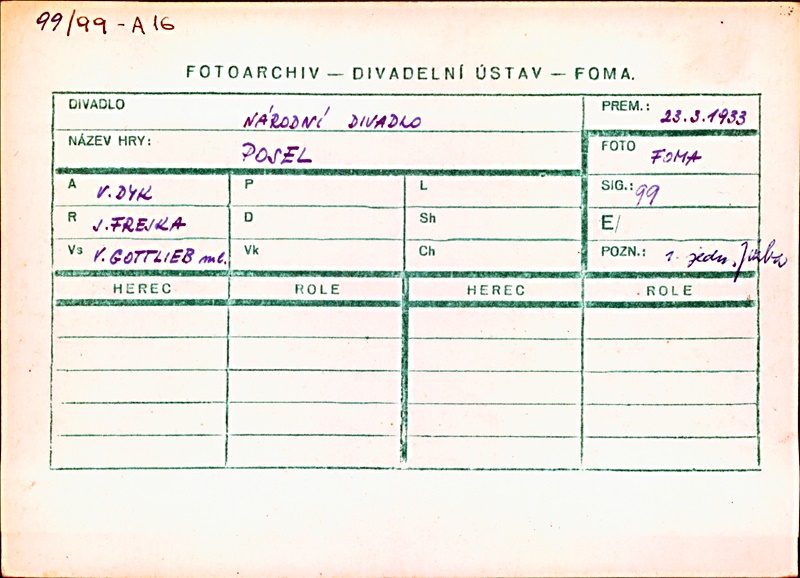 99/99 - A16
FOTOARCHIV — DIVADELNÍ ÚSTAV — FOMA.
DIVADLO NÁRODNÍ DIVADLO PREM.: 23.3.1933
NÁZEV HRY: POSEL FOTO FOMA
A V. DYK P L SIG.: 99
R J. FREJKA D Sh E/
Vs V. GOTTLIEB ml. Vk Ch POZN.: 1. jedn.
HEREC ROLE HEREC ROLE